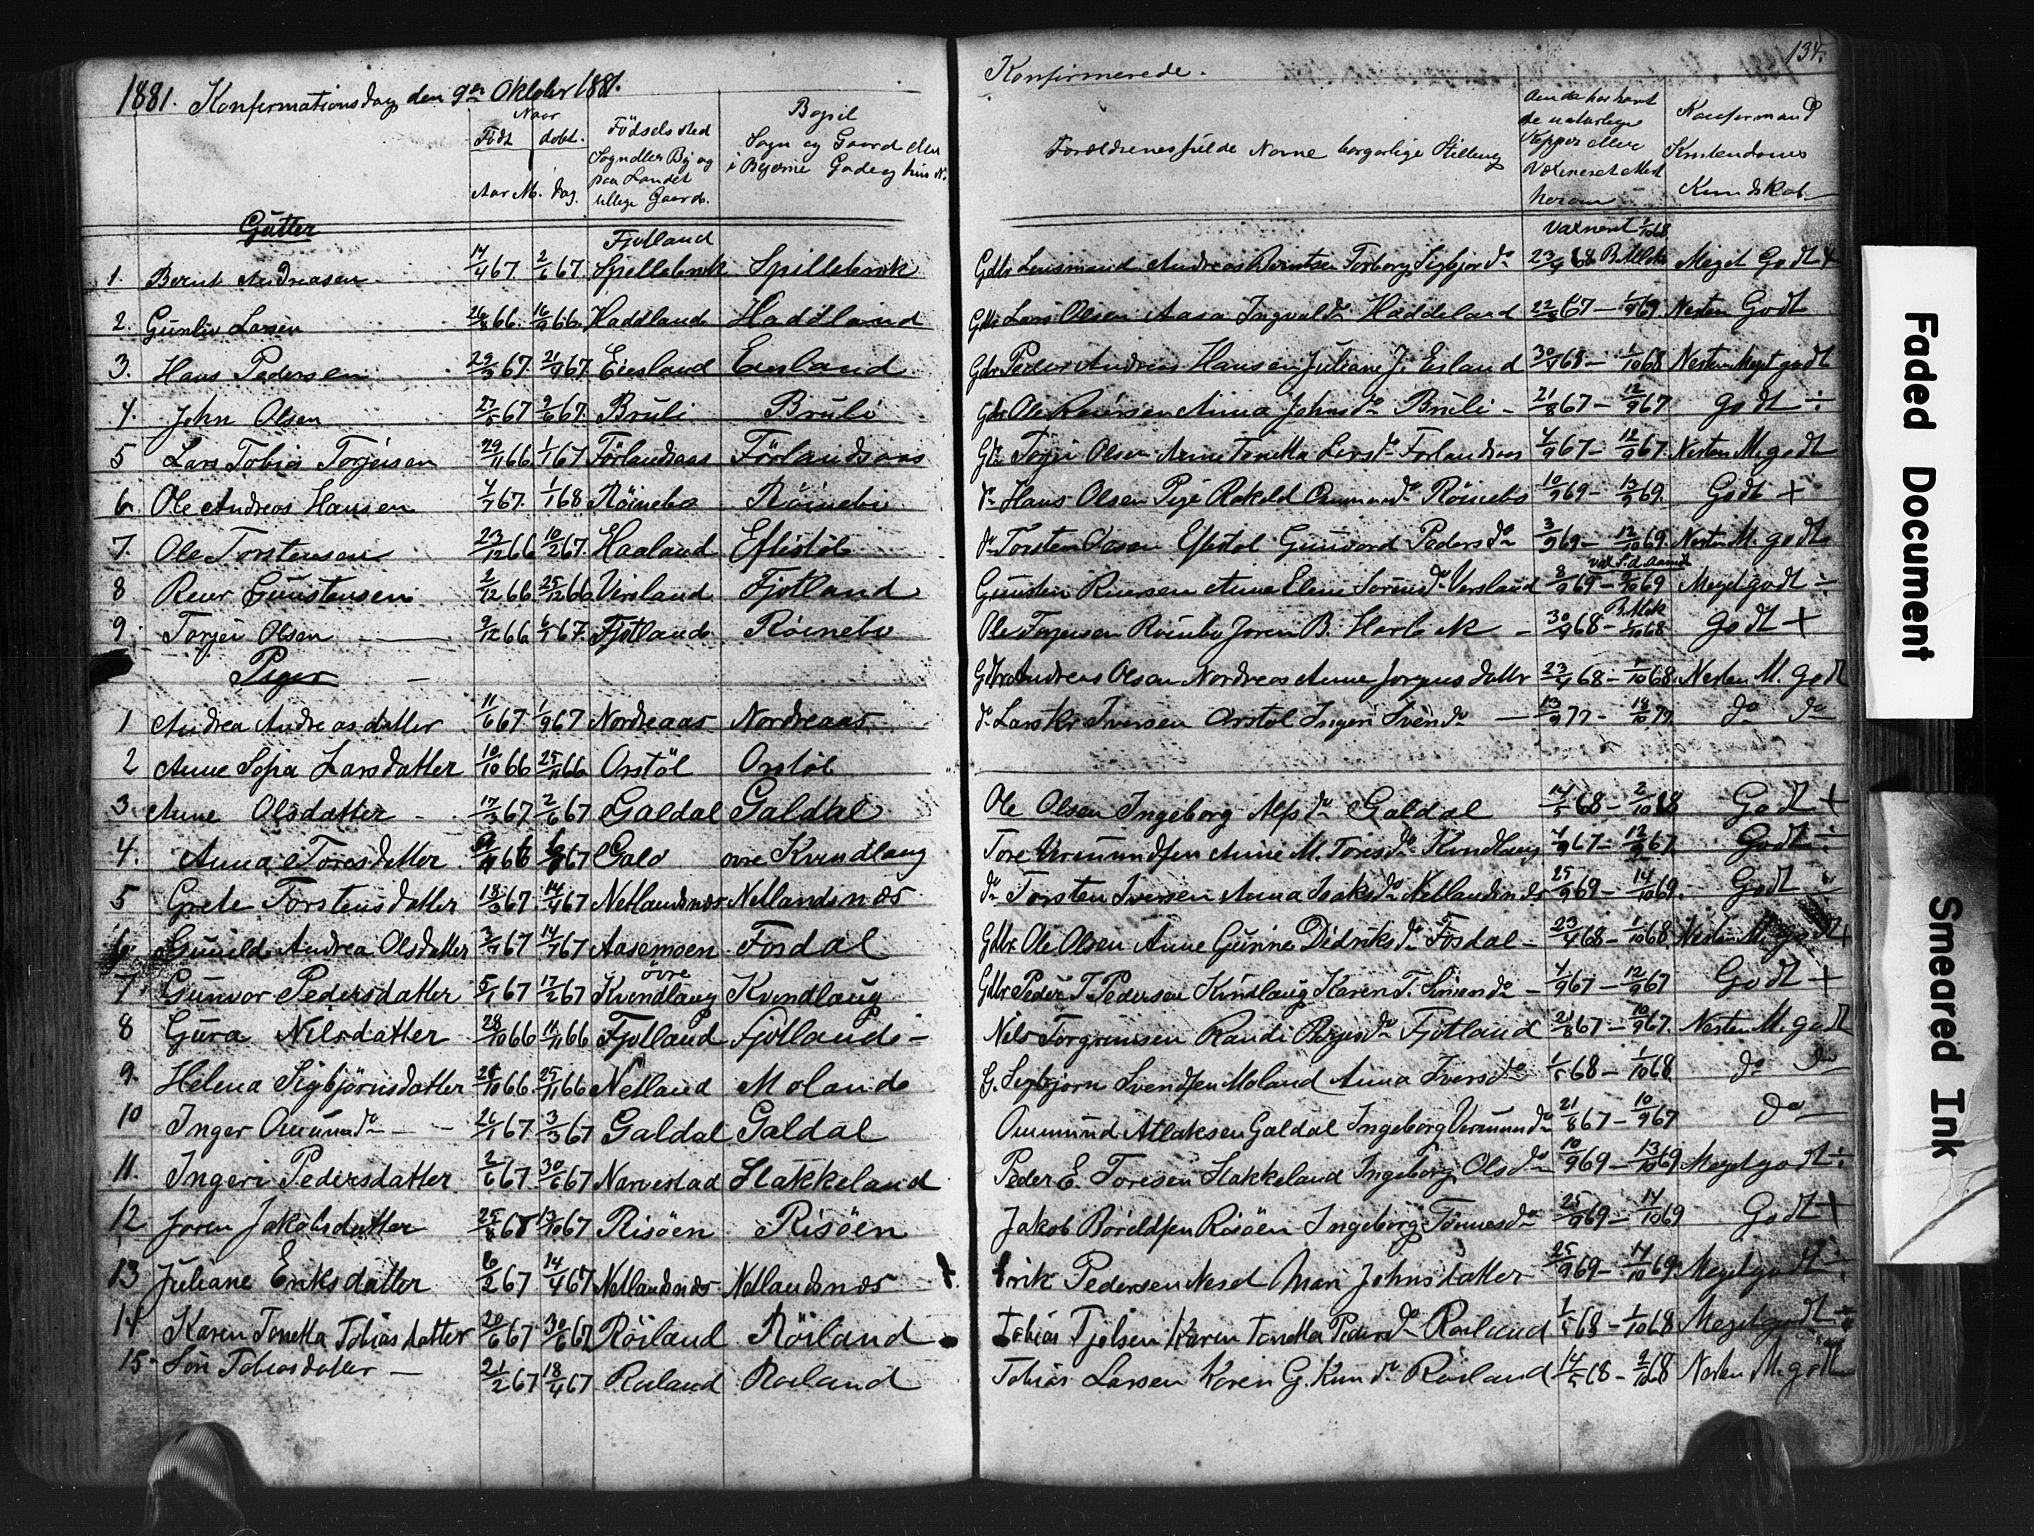 1881. Konfirmationsdag den 9de Oktober 1881.
Naar
Födt döbt.
Aar M. Dag.
Födselssted
Sogn eller By og
paa Landet
tillige Gaard.
Bopæl
Sogn og Gaard eller
i Byerne Gade og hus N.
Gutter
Fjotland
1. Bernt Andreasen 14/4 67 2/6 67 Spillebrok Spillebrok
2. Gunliv Larsen 66 16/9 66 Haddland Haddland
3. Hans Pedersen 29/3 67 21/4 67 Eiesland Eiesland
4. John Olsen 27/5 67 9/6 67 Bruli Bruli
5 Lars Tobias Torjeisen 29/11 66 1/1 67 Förlandsaas Förlandsaas
6. Ole Andreas Hansen 67. 1/1 68 Röinebo Röinebo
7. Ole Torstensen 23/12 66 10/2 67. Haaland Eftestöl
8 Reier Gunstensen 2/12 66 25/12 66 Virsland Fjotland
9. Torjei Olsen 9/12 66 67. Fjotland Röinebo
Piger
1 Andrea Andreasdatter 11/6 67 1/9 67 Nordreaas Nordreaas
2 Anne Sofia Larsdatter 10/10 66 25/11 66 Orstöl Orstöl
3. Anne Olsdatter 17/3 67 2/6 67 Galdal Galdal
4. Anna Toresdatter 66 67 Gald övre Kvindlaug
5 Grete Torstensdatter 18/3 67 14/4 67 Netlandsnæs Netlandsnæs
6. Gunild Andrea Olsdatter 67 14/7 67 Aasemoen Fosdal
övre
7 Gunvor Pedersdatter 5/1 67 17/2 67 Kvindlaug Kvindlaug
8 Gura Nilsdatter 28/10 66 11/11 66 Fjotland Fjotland
9. Helena Sigbjörnsdatter 66 25/11 66 Netland Moland
10 Inger Ommundda 67 3/3 67 Galdal Galdal
11. Ingeri Pedersdatter 2/6 67 30/6 67 Narvestad Stakkeland
12 Joren Jakobsdatter 25/8 67 13/10 67 Risöen Risöen
13 Juliane Eriksdatter 6/2 67 14/4 67 Netlandsnæs Netlandsnæs
14 Karen Tonetta Tobiasdatter 20/6 67 30/6 67 Röiland Röiland
15 Siri Tobiasdatter 21/2 67 18/4 67 Roiland Roiland
134.
Konfirmerede.
Forældrenes fulde Navne borgerlige Stilling
de naturlige
Kopper eller
Konfirmand
Kristendoms
Kundskab
Vaxineret 1/10 68
Gdbr Lensmand Andreas Berntsen Torborg Sigbjorda 23/4 68 Meget Godt +
Gdb Lars Olsen Aasa Ingvalda Hæddeland 22/8 67 – 69. Nesten Godt
Gdr Peder Andreas Hansen Juliane J. Eisland 30/4 68 – 1/10 68 Nesten Meget godt
Gdr Ole Reiersen Anna Johnsda Bruli – 21/8 67 – 12/9 67 godt ÷
Gdr Torjei Olsen Anne Tonetta Larsda Forlandsaas 67 – 12/9 67. Nesten M. godt
do Hans Olsen Rakeld Ommundda Röinebo 10/9 69 – 13/9 69. Godt +
do Torsten Eftestol Gunvord Pedersda 3/9 69 – 12/10 69. Nesten M. godt
Gunsten Reiersen Anne Elene Versland 8/9 69 – 9/10 69 Meget godt ÷
Ole Torjeisen Roinebo Joren B. 30/4 68 – 1/10 68 godt +
Gdbr Andreas Olsen Nordreaas Anne Jorgensdatter 23/4 68 – 1/10 68. Nesten M. godt
do Lars Kr Iversen Orstol Ingeri Svenda – 13/9 77 – 18/10 77. do do
Ole Olsen Ingeborg Galdal 14/5 68 – 2/10 68 Godt +
Tore Vermundsen Anne M. Toresda Kvindlaug 67 – 12/9 67. Godt ÷
do Torsten Iversen Anna Isaksda Netlandsnæs 25/9 69 – 14/10 69. Godt
Gdbr Ole Olsen Anne Gurine Didriksda Fosdal – 23/4 68 – 1/10 68. Nesten M. godt +
Gdbr Peder T Pedersen Kvindlaug Karen T. Simonda – 67 – 12/9 67 Godt +
Nils Torgrimsen Randi Fjotland 21/8 67 – 10/9 67. Nesten M. godt
G. Sigbjorn Svendsen Moland Anna Iversda 1/5 68 – 1/10 68 do do
Ommund Atlaksen Galdal Ingeborg Vermunda 21/8 67 – 10/9 67 do
Peder E. Toresen Stakkeland Ingeborg Olsda 10/9 69 – 13/10 69 Meget godt ÷
Jakob Risöen Ingeborg Tönnesda 25/9 69 – 14/10 69 Godt +
Erik Pedersen Mari Johnsdatter 25/9 69 – 14/10 69. Meget godt ÷
Tobias Karen Tonetta Pedersda Roiland 1/5 68 – 1/10 68 Meget godt ÷
Tobias Larsen Karen G. Roiland 14/5 68 – 2/10 68 Nesten M. godt
Faded Document
Smeared Ink